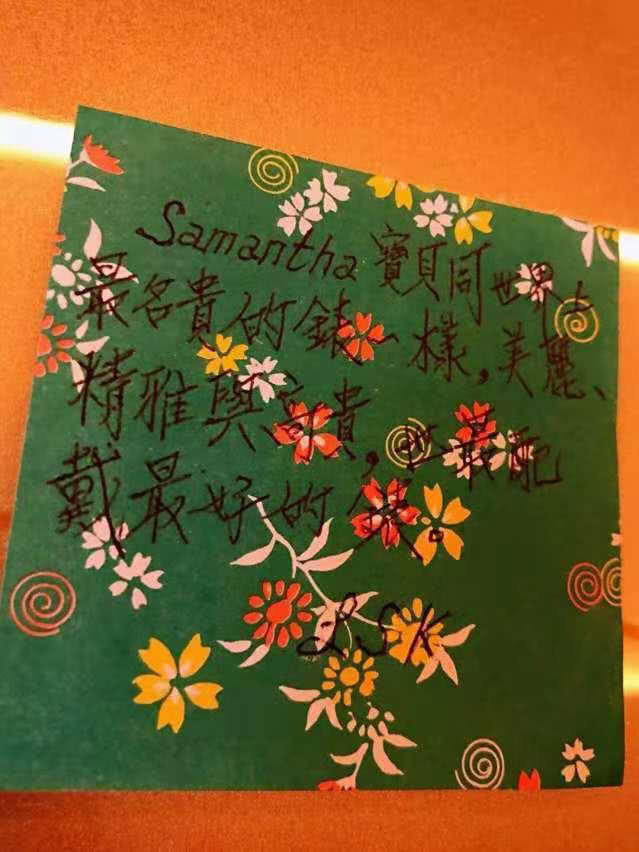 Samantha 寶貝同世界上
最名貴的錶一樣,美麗、
精雅與高貴,也最配
戴最好的錶。
LSK